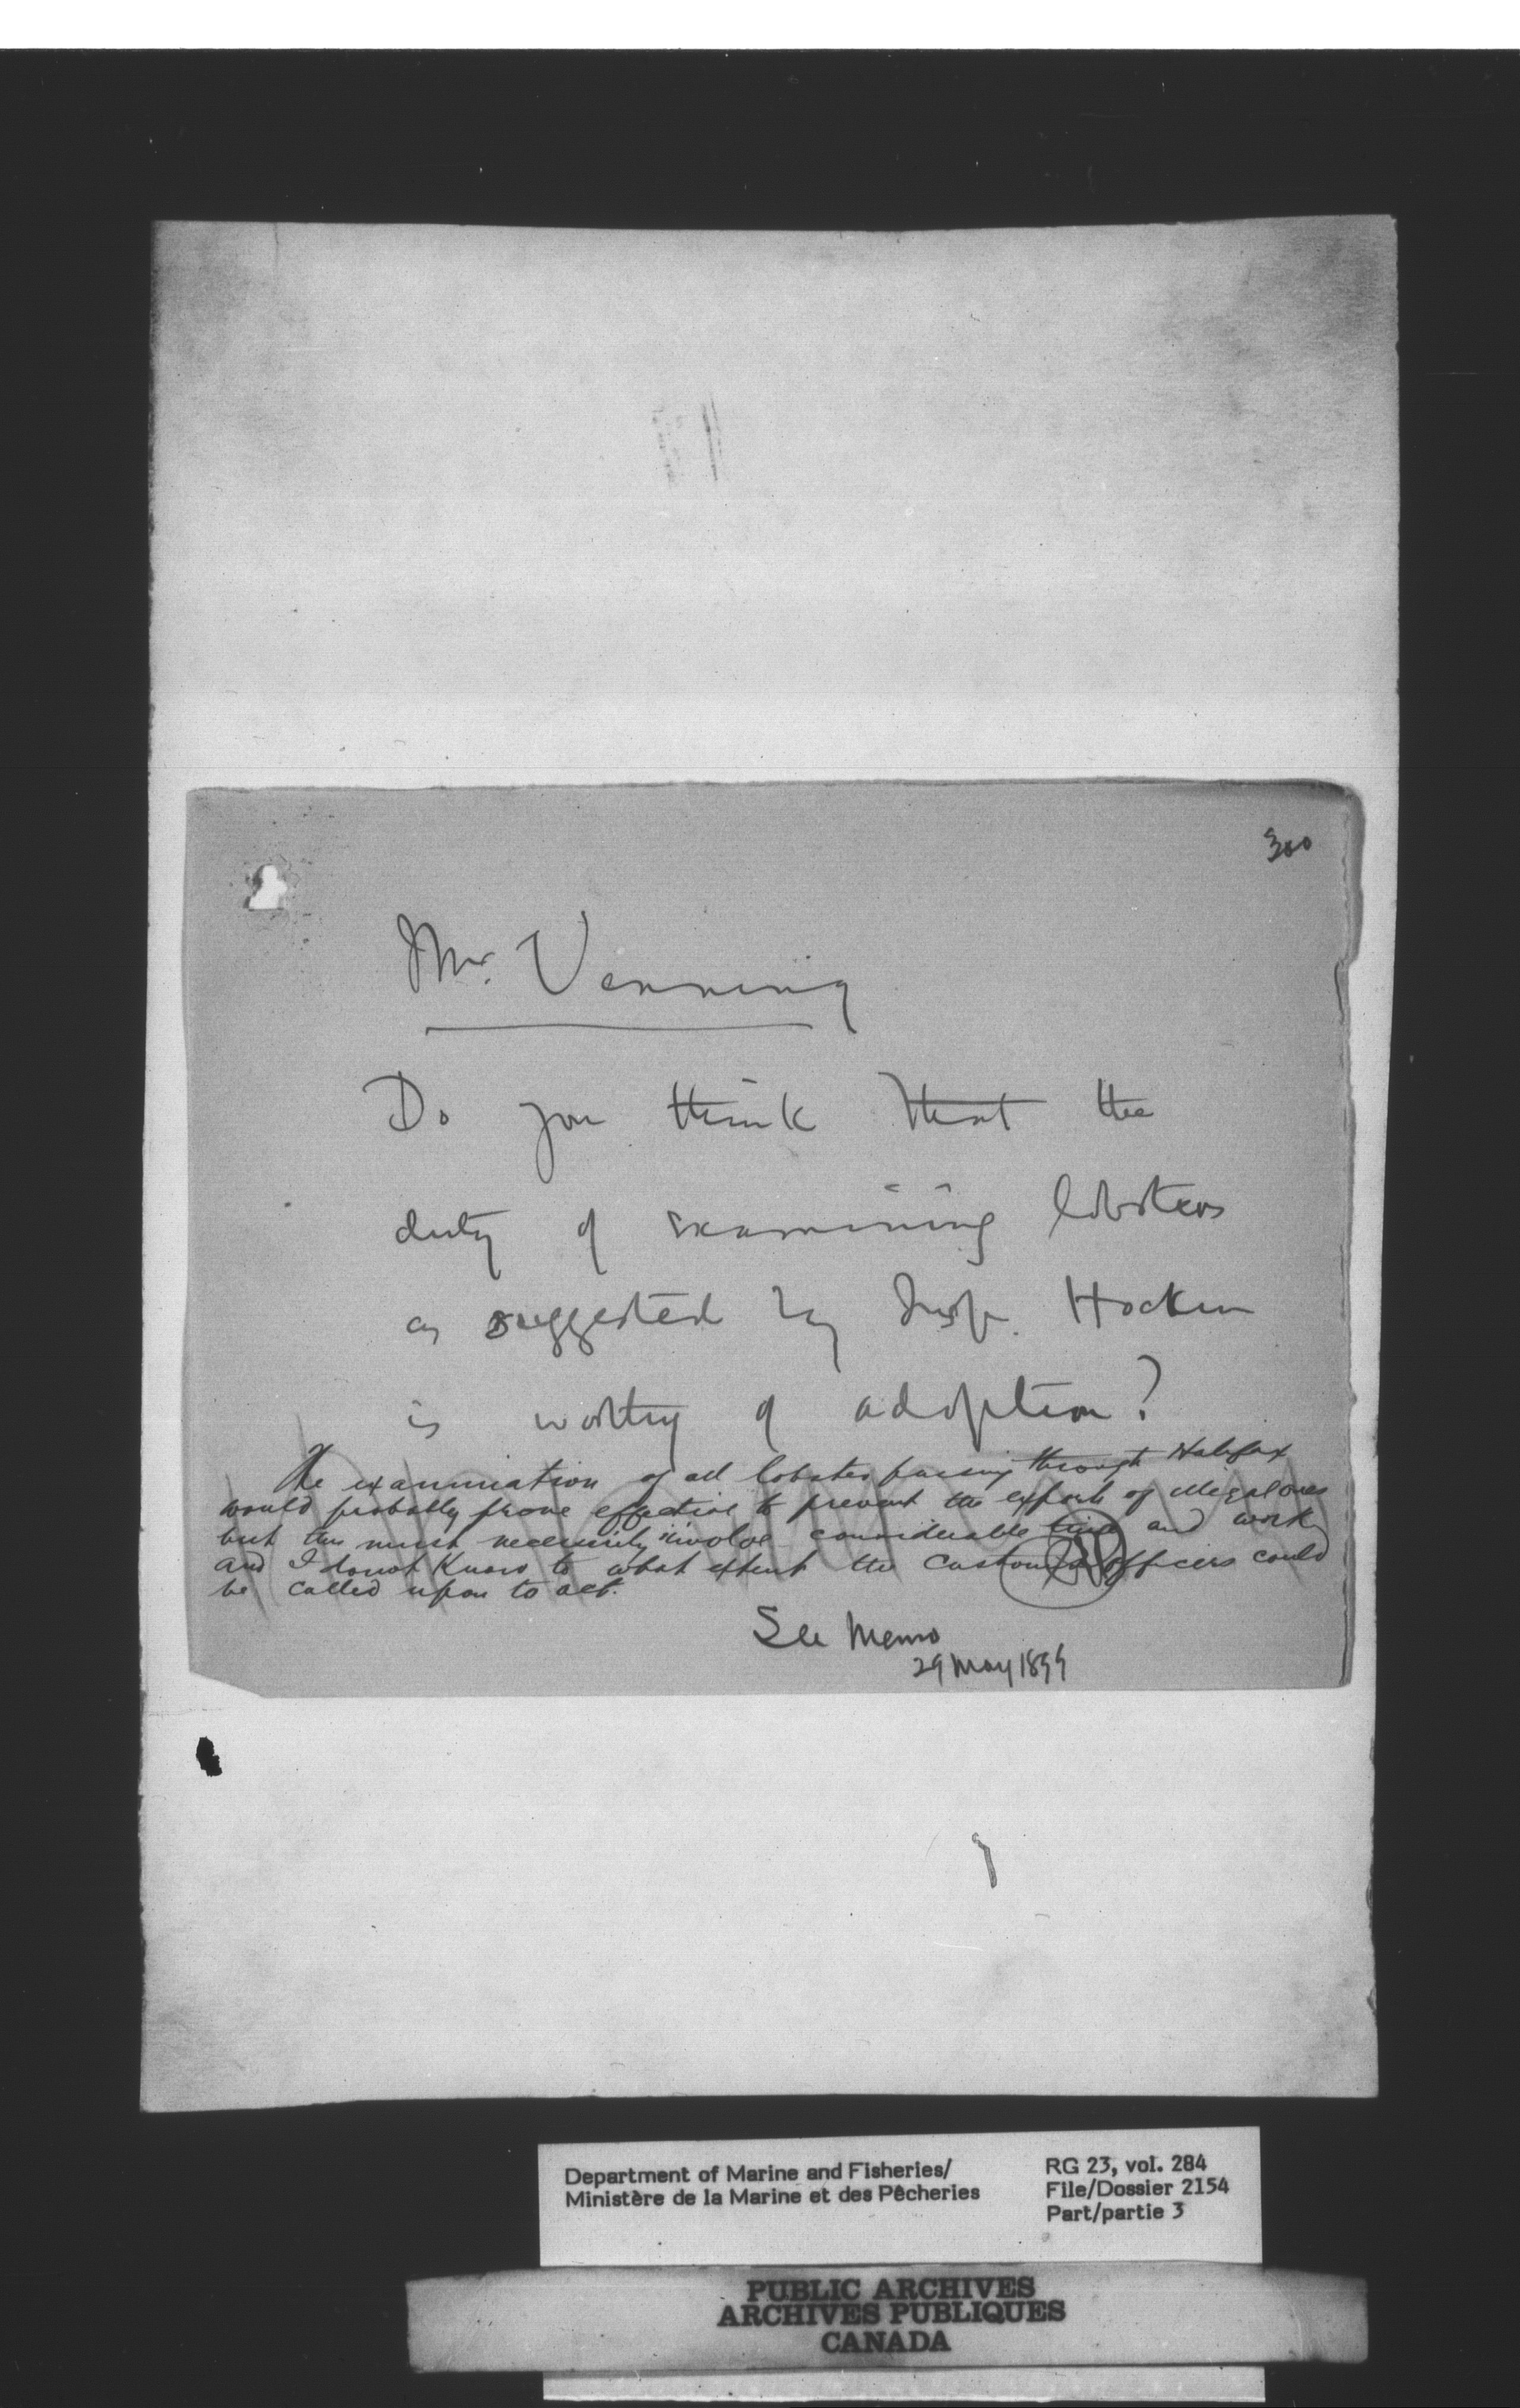 300
Mr. Venning
Do you think that the
duty of examining lobsters
as suggested by Insp. Hockin
is worthy of adoption?
The examination of all lobsters passing through Halifax
would probably prove effective to prevent the export of illegal ones
but this must necessarily involve considerable time and work,
and I do not know to what extent the Customs officers could
be called upon to act.
See Memo
29 May 1899
Department of Marine and Fisheries/
Ministère de la Marine et des Pêcheries
RG 23, vol. 284
File/Dossier 2154
Part/partie 3
PUBLIC ARCHIVES
ARCHIVES PUBLIQUES
CANADA